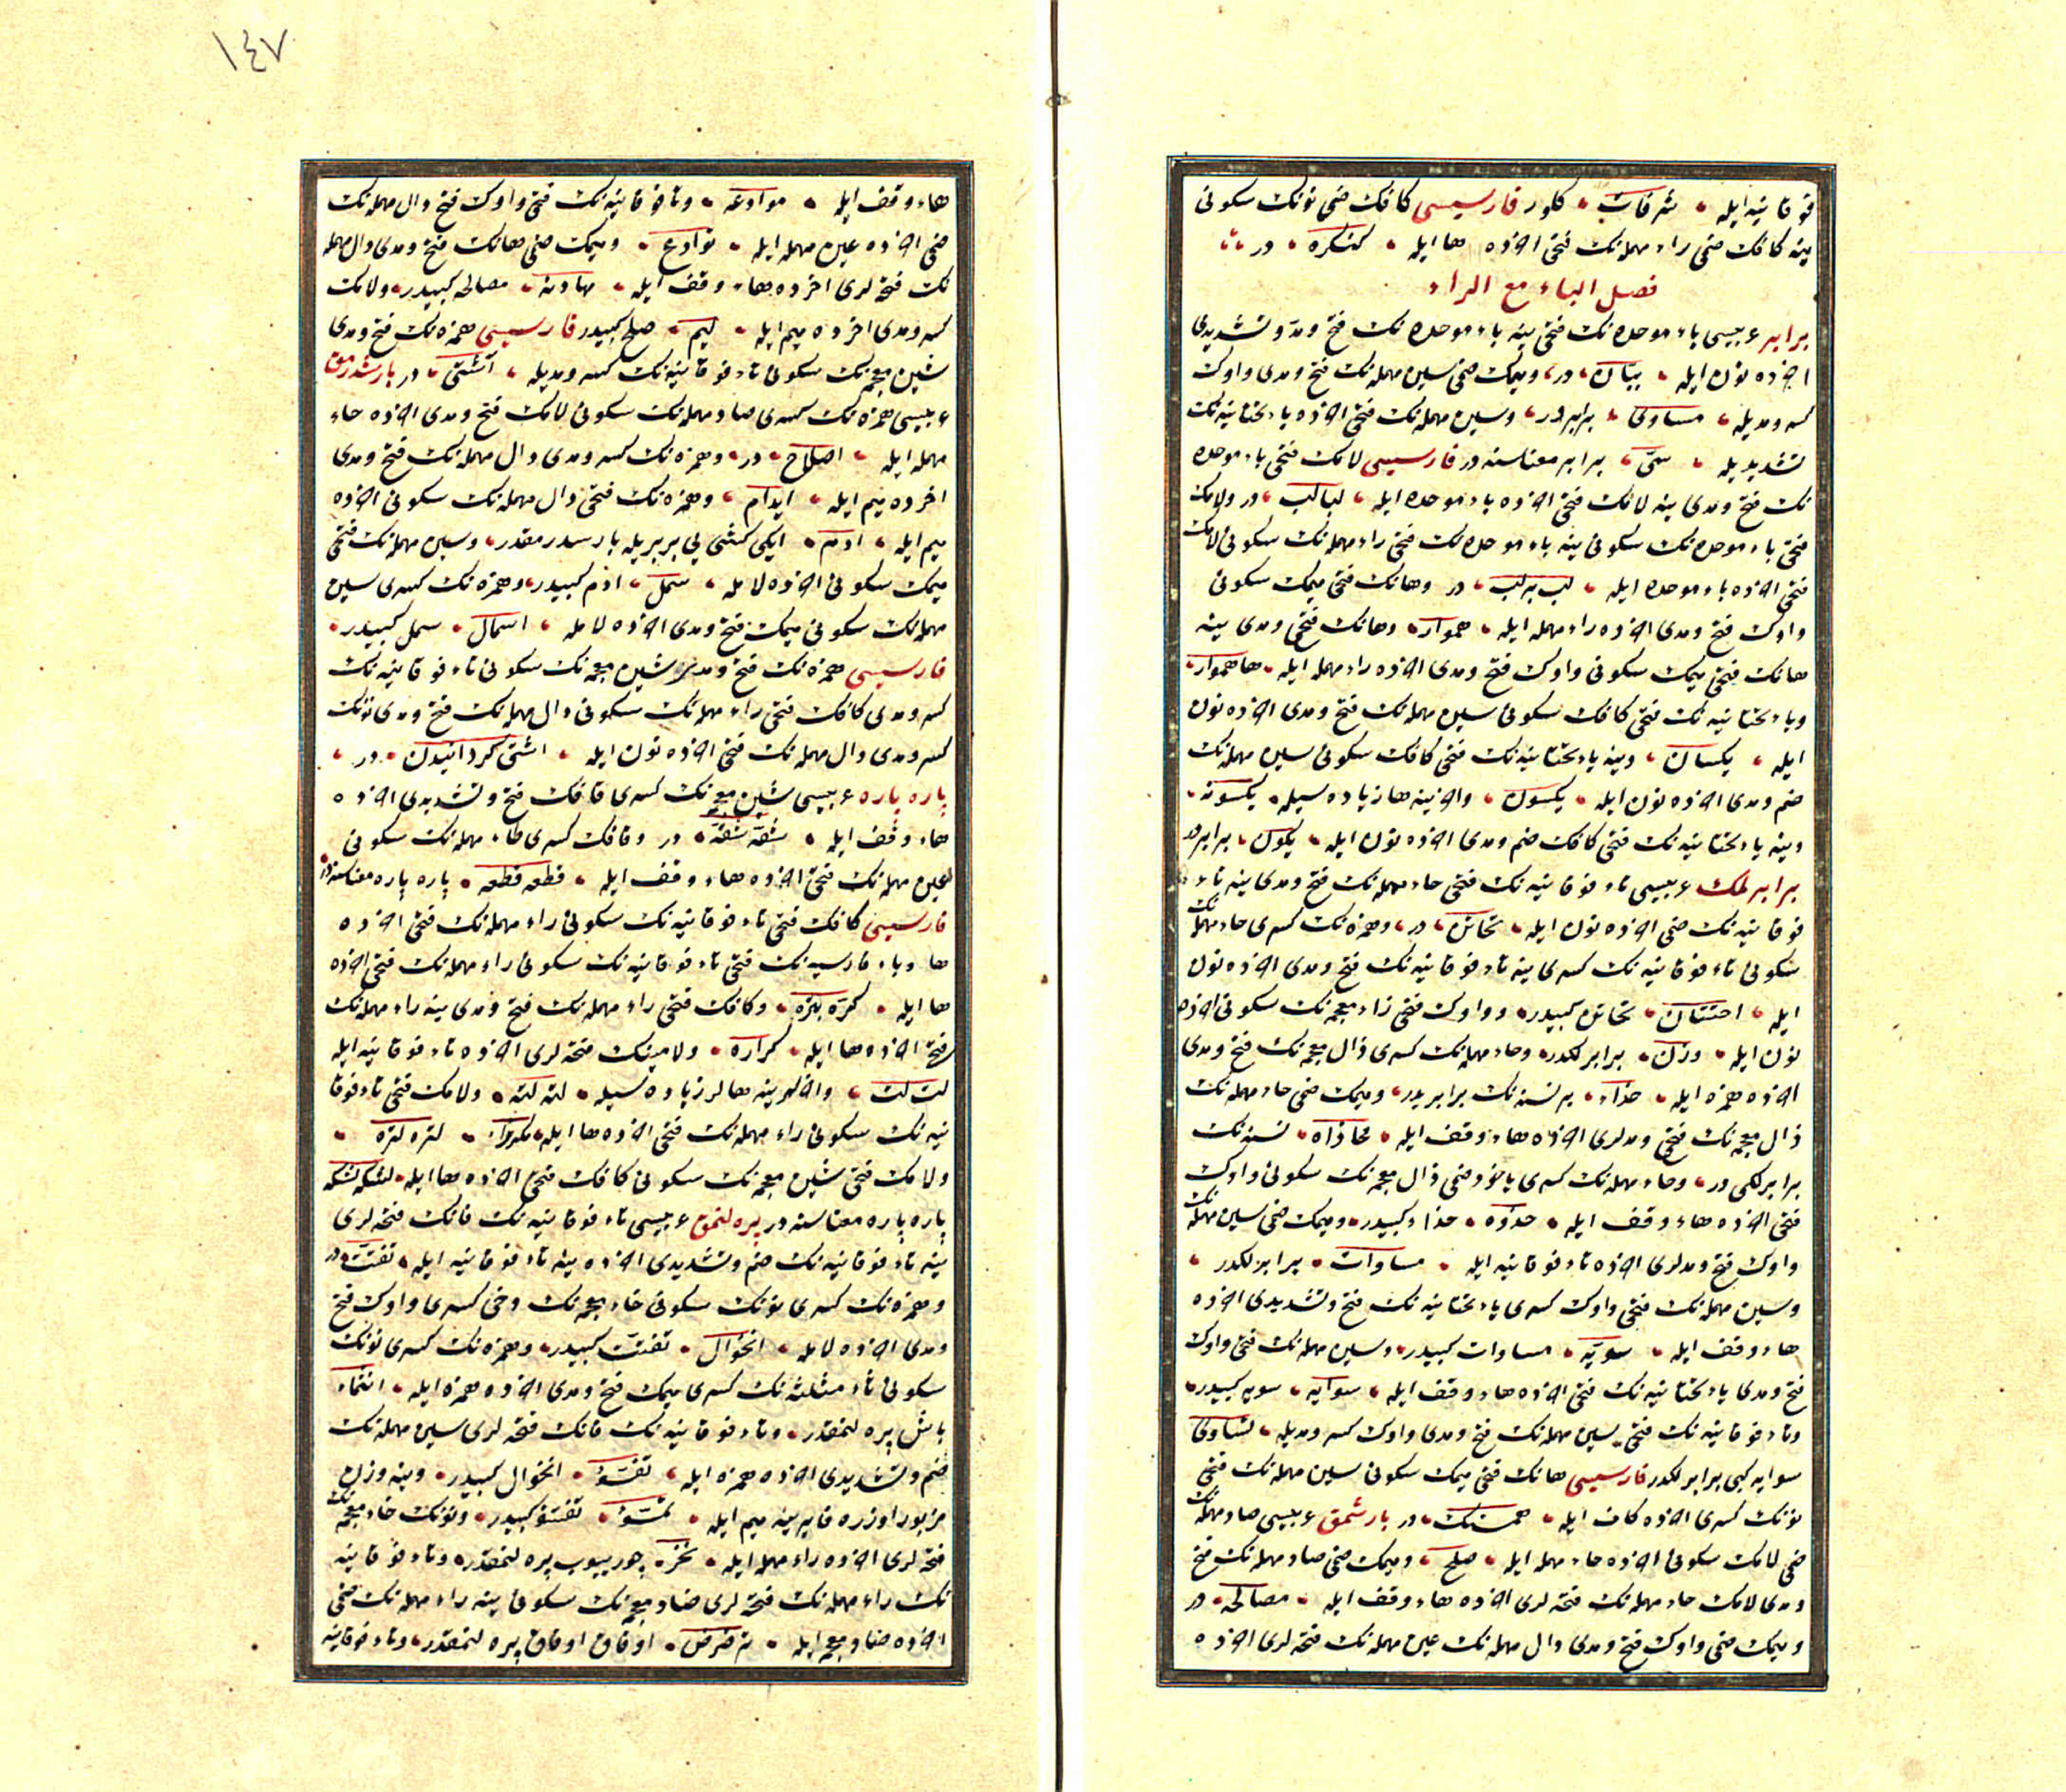 فوقانیه ایله شرفات کلور فارسیسی کافک ضمی نونک سکونی
ینه کافک ضمی راء مهمله نک فتحی اخرده ها ایله کنکره در
فصل الباء مع الراء
برابر عربیسی باء موحده نک فتحی ینه باء موحده نک فتح و مد و تشدیدی
اخرده نون ایله ببّان در و میمک ضمی سین مهمله نک فتح و مدی واوک
کسر و مدیله مساوی برابردر و سین مهمله نک فتحی اخرده یاء تحتانیه نک
تشدیدیله سیّ برابر معناسنه در فارسیسی لامک فتحی باء موحده
نک فتح و مدی ینه لامک فتحی اخرده باء موحده ایله لبالب در و لامک
فتحی باء موحده نک سکونی ینه باء موحده نک فتحی راء مهمله نک سکونی لامک
فتحی اخرده باء موحده ایله لب برلب در و هانک فتحی میمک سکونی
واوک فتح و مدی اخرده راء مهمله ایله هموار و هانک فتحی و مدی ینه
هانک فتحی میمک سکونی واوک فتح و مدی اخرده راء مهمله ایله هاهموار
و یاء تحتانیه نک فتحی کافک سکونی سین مهمله نک فتح و مدی اخرده نون
ایله یکسان و ینه یاء تحتانیه نک فتحی کافک سکونی سین مهمله نک
ضم و مدی اخرده نون ایله یکسون و اخرینه ها زیاده سیله یکسونه
و ینه یاء تحتانیه نک فتحی کافک ضم و مدی اخرده نون ایله یکون برابردر
برابرلمک عربیسی تاء فوقانیه نک فتحی حاء مهمله نک فتح و مدی ینه تاء
فوقانیه نک ضمی اخرده نون ایله تحاتن در و همزه نک کسری حاء مهمله نک
سکونی تاء فوقانیه نک کسری ینه تاء فوقانیه نک فتح و مدی اخرده نون
ایله احتتان تحاتن کبیدر و واوک فتحی زاء معجمه نک سکونی اخرده
نون ایله وزن برابرلکدر و حاء مهمله نک کسری ذال معجمه نک فتح و مدی
اخرده همزه ایله حذاء بر نسنه نک برابریدر و میمک ضمی حاء مهمله نک
ذال معجمه نک فتحی و مدلری اخرده هاء وقف ایله محاذاه نسنه نک
برابرلکی در و حاء مهمله نک کسری یاخود ضمی ذال معجمه نک سکونی واوک
فتحی اخرده هاء وقف ایله حذوه حذاء کبیدر و میمک ضمی سین مهمله نک
واوک فتح و مدلری اخرده تاء فوقانیه ایله مساوات برابرلکدر
و سین مهمله نک فتحی واوک کسری یاء تحتانیه نک فتح و تشدیدی اخرده
هاء وقف ایله سویّه مساوات کبیدر و سین مهمله نک فتحی واوک
فتح و مدی یاء تحتانیه نک فتحی اخرده هاء وقف ایله سوایه سویه کبیدر
و تاء فوقانیه نک فتحی سین مهمله نک فتح و مدی واوک کسر و مدیله تساوی
سوایه کبی برابرلکدر فارسیسی هانک فتحی میمک سکونی سین مهمله نک فتحی
نونک کسری اخرده کاف ایله همسنک در بارشمق عربیسی صاد مهمله نک
ضمی لامک سکونی اخرده حاء مهمله ایله صلح و میمک ضمی صاد مهمله نک فتح
و مدی لامک حاء مهمله نک فتحه لری اخرده هاء وقف ایله مصالحه در
و میمک ضمی واوک فتح و مدی دال مهمله نک عین مهمله نک فتحه لری اخرده
١٤٧
هاء وقف ایله موادعه و تاء فوقانیه نک فتحی واوک فتح دال مهمله نک
ضمی اخرده عین مهمله ایله توادع و میمک ضمی هانک فتح و مدی دال مهمله
نک فتحه لری اخرده هاء وقف ایله مهادنه مصالحه کبیدر و لامک
کسر و مدی اخرده میم ایله لیم صلح کبیدر فارسیسی همزه نک فتح و مدی
شین معجمه نک سکونی تاء فوقانیه نک کسر و مدیله آشتی در بارشدرمق
عربیسی همزه نک کسری صاد مهمله نک سکونی لامک فتح و مدی اخرده حاء
مهمله ایله اصلاح در و همزه نک کسر و مدی دال مهمله نک فتح و مدی
اخرده میم ایله ایدام و همزه نک فتحی دال مهمله نک سکونی اخرده
میم ایله ادم ایکی کشی یی بربریله بارشدرمقدر و سین مهمله نک فتحی
میمک سکونی اخرده لام ایله سمل ادم کبیدر و همزه نک کسری سین
مهمله نک سکونی میمک فتح و مدی اخرده لامله اسمال سمل کبیدر
فارسیسی همزه نک فتح و مدی شین معجمه نک سکونی تاء فوقانیه نک
کسر و مدی کافک فتحی راء مهمله نک سکونی دال مهمله نک فتح و مدی نونک
کسر و مدی دال مهمله نک فتحی اخرده نون ایله اشتی کردانیدن در
پاره پاره عربیسی شین معجمه نک کسری قافک فتح و تشدیدی اخرده
هاء وقف ایله شقّه شقّه در و قافک کسری طاء مهمله نک سکونی
عین مهمله نک فتحی اخرده هاء وقف ایله قطعه قطعه پاره پاره معناسنه در
فارسیسی کافک فتحی تاء فوقانیه نک سکونی راء مهمله نک فتحی اخرده
ها و باء فارسیه نک فتحی تاء فوقانیه نک سکونی راء مهمله نک فتحی اخرده
ها ایله کتره پتره و کافک فتحی راء مهمله نک فتح و مدی ینه راء مهمله نک
فتحی اخرده ها ایله کراره و لامینک فتحه لری اخرده تاء فوقانیه ایله
لت لت و اخرلرینه هالر زیاده سیله لته لته و لامک فتحی تاء فوقا
نیه نک سکونی راء مهمله نک فتحی اخرده ها ایله لتره لتره
و لامک فتحی شین معجمه نک سکونی کافک فتحی اخرده ها ایله لشکه لشکه
پاره پاره معناسنه در پره لنمق عربیسی تاء فوقانیه نک فانک فتحه لری
ینه تاء فوقانیه نک ضم و تشدیدی اخرده ینه تاء فوقانیه ایله تفتّت در
و همزه نک کسری نونک سکونی خاء معجمه نک وخی کسری واوک فتح
و مدی اخرده لامله انخوال تفتت کبیدر و همزه نک کسری نونک
سکونی ثاء مثلثه نک کسری میمک فتح و مدی اخرده همزه ایله انثماء
باش پره لنمقدر و تاء فوقانیه نک فانک فتحه لری سین مهمله نک
ضم و تشدیدی اخرده همزه ایله تفسّؤ انخوال کبیدر و ینه وزن
مزبور اوزره فایه بینه میم ایله تمسّؤ تفسؤ کبیدر و نونک خاء معجمه نک
فتحه لری اخرده راء مهمله ایله نخر چوریوب پره لنمقدر و تاء فوقانیه
نک راء مهمله نک فتحه لری ضاد معجمه نک سکونی ینه راء مهمله نک ضمی
اخرده ضاد معجمه ایله ترضرض اوفاق اوفاق پره لنمقدر و تاء فوقانیه